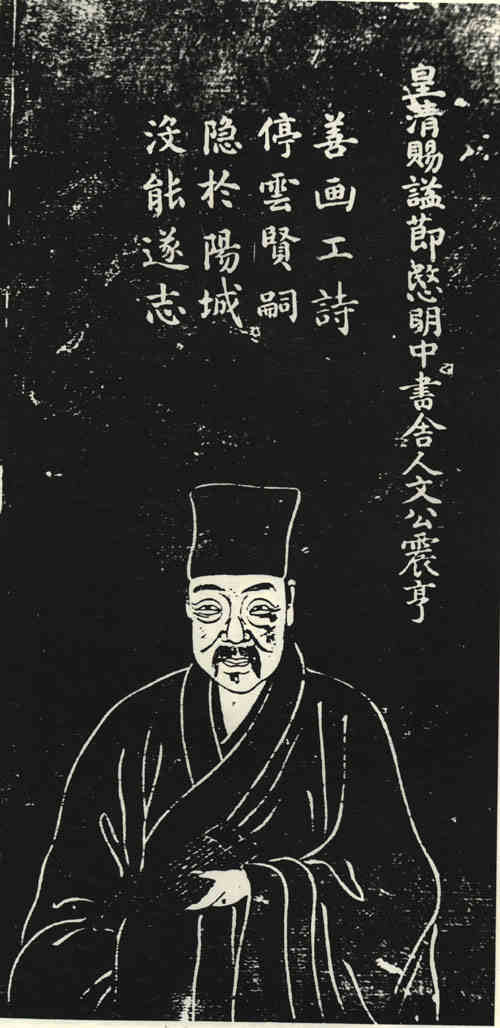 皇清賜諡節愍明中書舍人文公震亨
善画工詩
停雲賢嗣
隐於陽城
沒能遂志